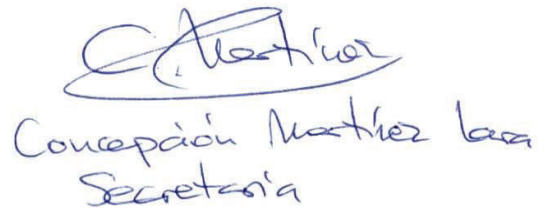 C. Martínez
Concepción Martínez Lara
Secretaria